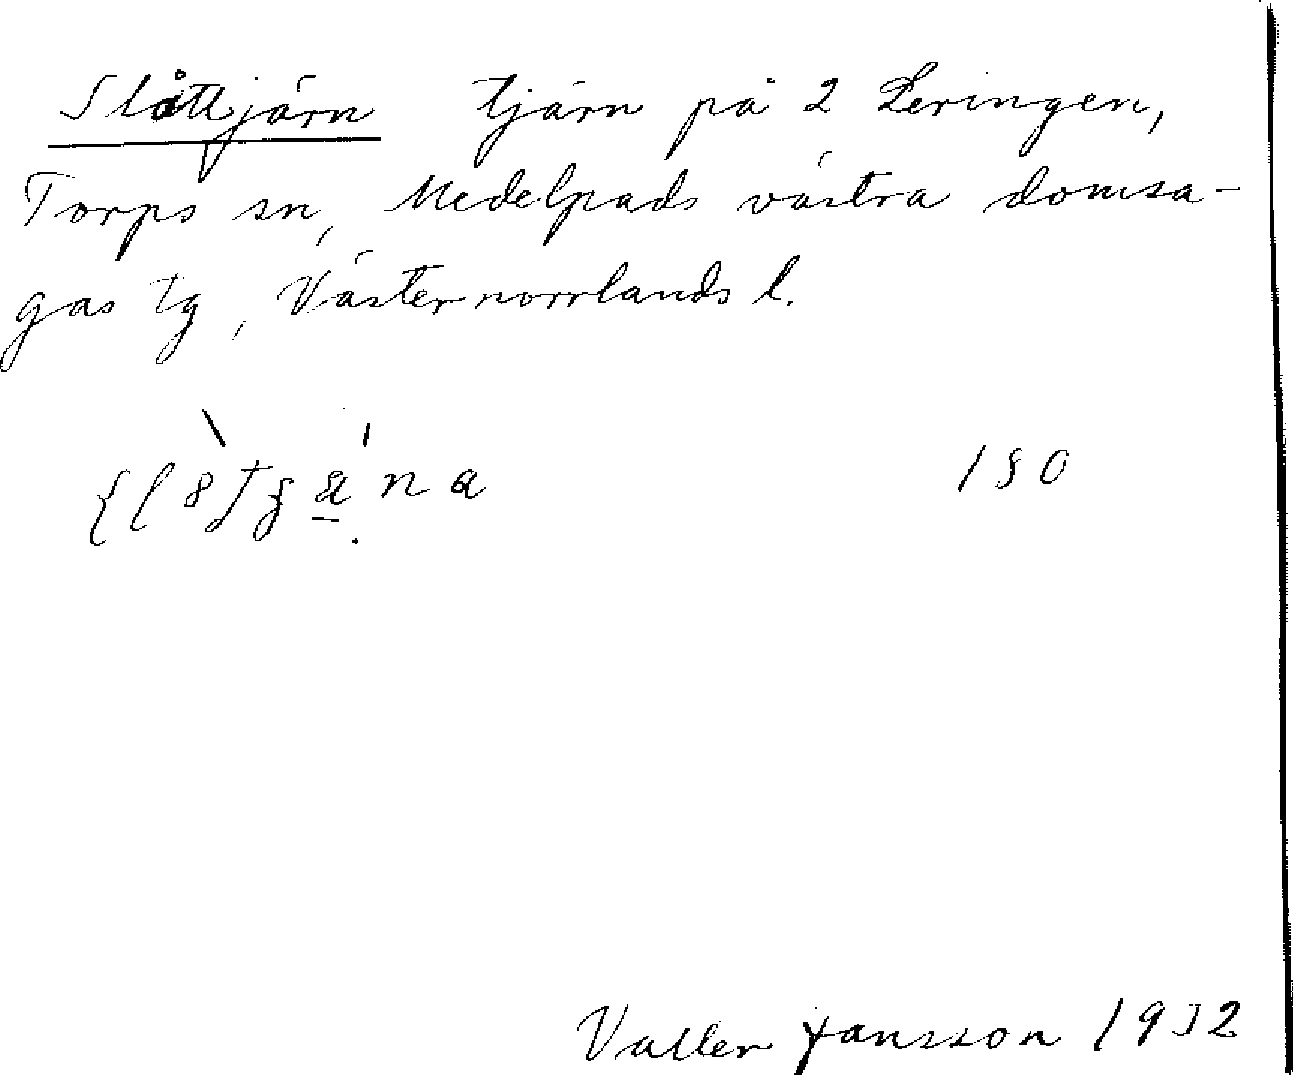 Slåttjärn tjärn på 2 Leringen,
Torps sn, Medelpads västra domsa-
gas tg, Västernorrlands l.
Valter Jansson 1932